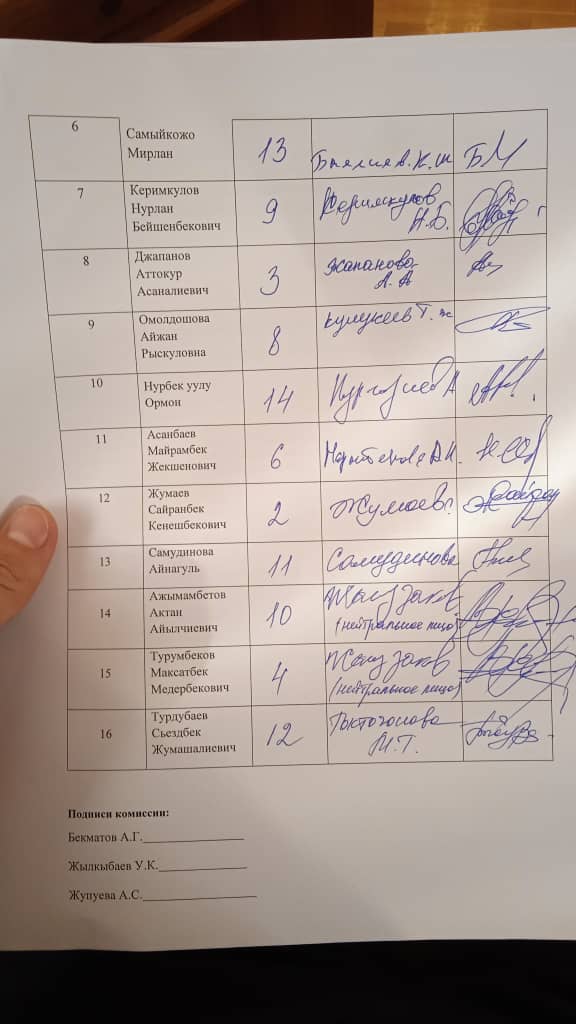 6
Самыйкожо
Мирлан
13
Б М
7
Керимкулов
Нурлан
Бейшенбекович
9
Керимкулов
Н.Б.
8
Джапанов
Аттокур
Асаналиевич
3
Жапанова
А. А
9
Омолдошова
Айжан
Рыскуловна
8
Кулукеев Т. ж
10
Нурбек уулу
Ормон
14
11
Асанбаев
Майрамбек
Жекшенович
6
12
Жумаев
Сайранбек
Кенешбекович
2
Жумаев С.
13
Самудинова
Айнагуль
11
Самудинова
14
Ажымамбетов
Актан
Айылчиевич
10
(нейтральное лицо)
15
Турумбеков
Максатбек
Медербекович
4
(нейтральное лицо)
16
Турдубаев
Сьездбек
Жумашалиевич
12
Токтогонова
М.Т.
Подписи комиссии:
Бекматов А.Г.
Жылкыбаев У.К.
Жупуева А.С.